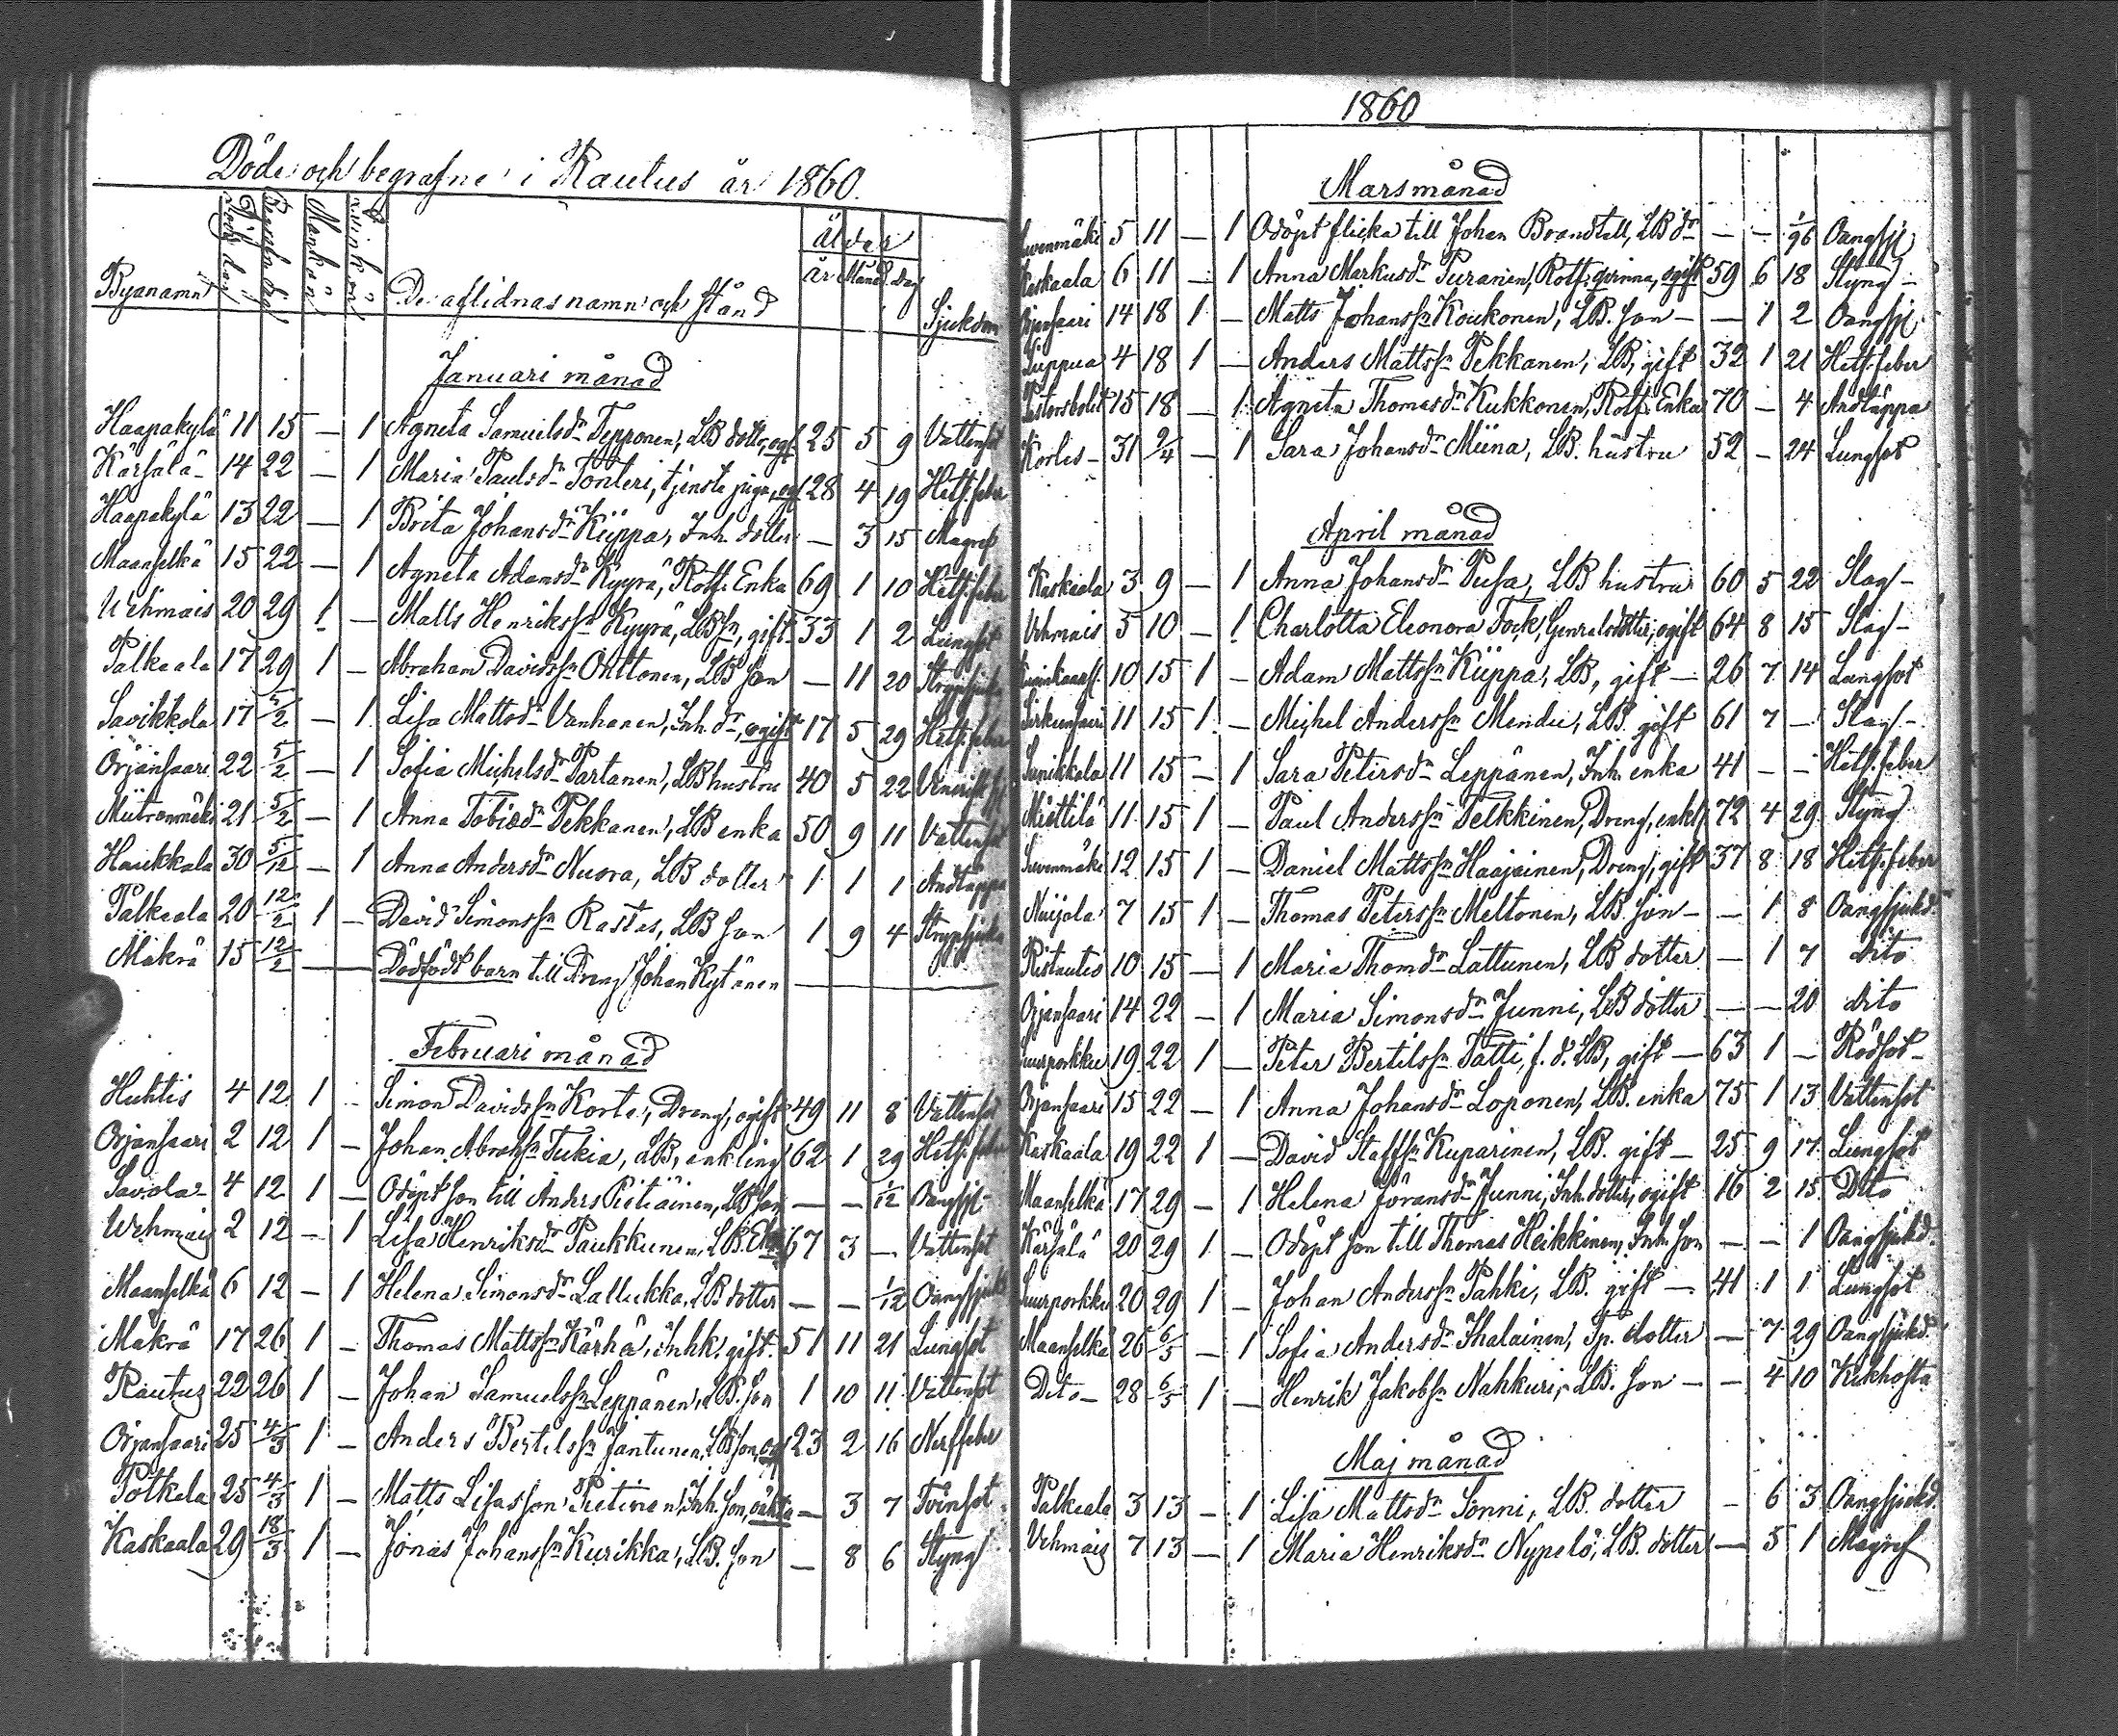 Döde och begrafne i Rautus år 1860.
Byanamn Döds dag Begrafn. dag Mankön Qvinkön De aflidnas namn och stånd ålder år Månad dag Sjukdom
Januari månad
Haapakylä 11 15 — 1 Agneta Samuelsdr Tepponen, LB dotter, ogf 25 5 9 Vattensot
Kärsälä - 14 22 — 1 Maria Paulsdr Tonteri, tjenste piga, ogf 28 4 19 Hets. feber
Haapakylä 13 22 — 1 Brita Johansdr Kiippa, Inh. dotter — 3 15 Magref
Maanselkä 15 22 — 1 Agneta Adamsdr Kyyrä, Rotf. Enka 69 1 10 Hets. feber
Urhmais 20 29 1 — Matts Henrikssn Kyyrä, LB sn, gift 33 1 2 Lungsot
Palkeala 17 29 1 — Abraham Davidssn Onttonen, LB son — 11 20 Strypsjuka
Savikkola 17 5/2 — 1 Lisa Mattsdr Vanhanen, Inh. dr, ogift 17 5 29 Hets. feber
Orjansaari 22 5/2 — 1 Sofia Michelsdr Partanen, LB hustru 40 5 22
21 5/2 — 1 Anna Tobiædr Pekkanen, LB enka 50 9 11 Vattensot
Haukkala 30 5/12 — 1 Anna Andersdr Nuora, LB dotter 1 1 1 Andtäppa
Palkeala 20 12/2 1 — David Simonssn Rastas, LB son 1 9 4 Strypsjuka
Mäkrä 15 12/2 — — Dödfödt barn till Dreng Johan Kytänen —
Februari månad
Huhtis 4 12 1 — Simon Davidssn Korte, Dreng, ogift 49 11 8 Vattensot
Orjansaari 2 12 1 — Johan Abrahssn Tukia, LB, enkling 62 1 29 Hets. feber
Savola - 4 12 1 — Odöpt son till Anders Pietiäinen, LB son — — 1/12 Oangsjf.
Urhmais 2 12 — 1 Lisa Henriksdr Paukkunen, LB. Enka 67 3 — Vattensot
Maanselkä 6 12 — 1 Helena Simonsdr Lallukka, LB dotter — — 1/12 Oangsjukd
Mäkrä 17 26 1 — Thomas Mattssn Kärhä, Inhk. gift. 51 11 21 Lungsot
Rautus 22 26 1 — Johan Samuelssn Leppänen, LB. son 1 10 11 Vattensot
Orjansaari 25 4/3 1 — Anders Bertilssn Jantunen, LB son, ogf 23 2 16 Nerffeber
Potkela 25 4/3 1 — Matts Lisasson Pietinen, Inh. son, oäkta — 3 7 Tvinsot
Kaskaala 29 18/3 1 — Jonas Johanssn Kurikka, LB. son — 8 6 Styng
1860
Marsmånad
Suvenmäki 5 11 — 1 Odöpt flicka till Johan Brandtell, LB dr — — 1/96 Oangsjf
Kaskaala 6 11 — 1 Anna Markusdr Puranen, Rotf. qvinna, ogift 59 6 18 Styng -
Orjansaari 14 18 1 — Matts Johanssn Koukonen, LB. son — — 1 2 Oangsjf.
Liippua 4 18 1 — Anders Mattssn Pekkanen, LB, gift 32 1 21 Hets. feber
Pastorsbolet 15 18 — 1 Agneta Thomasdr Kukkonen, Rotf. Enka 70 — 4 Andtäppa
Korles - 31 2/4 — 1 Sara Johansdr Miina, LB. hustru 52 — 24 Lungsot
April månad
Kaskaala 3 9 — 1 Anna Johansdr Pusa, LB hustru 60 5 22 Slag -
Urhmais 5 10 — 1 Charlotta Eleonora Fock, Generalsdotter, ogift 64 8 15 Slag -
10 15 1 — Adam Mattssn Kiippa, LB, gift — 26 7 14 Lungsot
Sirkiensaari 11 15 1 — Michel Anderssn Mendu, LB. gift 61 7 — Slag -
11 15 — 1 Sara Petersdr Leppänen, Inh. enka 41 — — Hets. feber
Miettilä 11 15 1 — Paul Anderssn Pelkkinen, Dreng, enkl 72 4 29 Styng
Suvenmäki 12 15 1 — Daniel Mattssn Haajainen, Dreng, gift 37 8 18 Hets. feber
Nuijala 7 15 1 — Thomas Peterssn Meltonen, LB. son — — 1 8 Oangsjukd.
Ristautis 10 15 — 1 Maria Thomdr Lattunen, LB dotter — 1 7 dito
Orjansaari 14 22 — 1 Maria Simonsdr Junni, LB dotter — — 20 dito
Suurporkku 19 22 1 — Peter Bertilssn Tatti, f. d. LB, gift — 63 1 — Rödsot -
Orjansaari 15 22 — 1 Anna Johansdr Loponen, LB. enka 75 1 13 Vattensot
Kaskaala 19 22 1 — David Staffssn Kuparinen, LB. gift — 25 9 17 Lungsot
Maanselkä 17 29 — 1 Helena Göransdr Junni, Inh. dotter, ogift 16 2 15 Dito
Kärsälä 20 29 1 — Odöpt son till Thomas Heikkinen, Inh. son — — 1 Oangsjukd.
Suurporkku 20 29 1 — Johan Anderssn Pahki, LB. gift — 41 1 1 Lungsot
Maanselkä 26 6/5 — 1 Sofia Andersdr Ihalainen, Tp. dotter — 7 29 Oangsjukd.
Dito - 28 6/5 1 — Henrik Jakobssn Nahkuri, LB. son — — 4 10 Kikhosta
Maj månad
Palkeala 3 13 — 1 Lisa Mattsdr Sonni, LB. dotter — 6 3 Oangsjukd.
Urhmais 7 13 — 1 Maria Henriksdr Nypelö, LB. dotter — 5 1 Magref